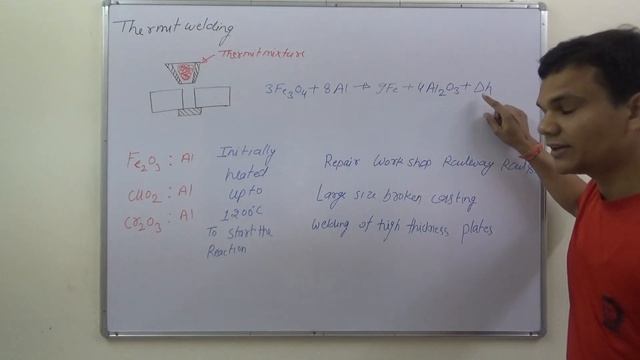 Thermit welding
Thermit mixture
3Fe3O4 + 8Al → 9Fe + 4Al2O3 + Δh
Fe2O3 : Al
CuO2 : Al
Cr2O3 : Al
Initially
heated
up to
1200°C
To start the
Reaction
Repair Workshop Railway Rails
Large size broken casting
welding of high thickness plates